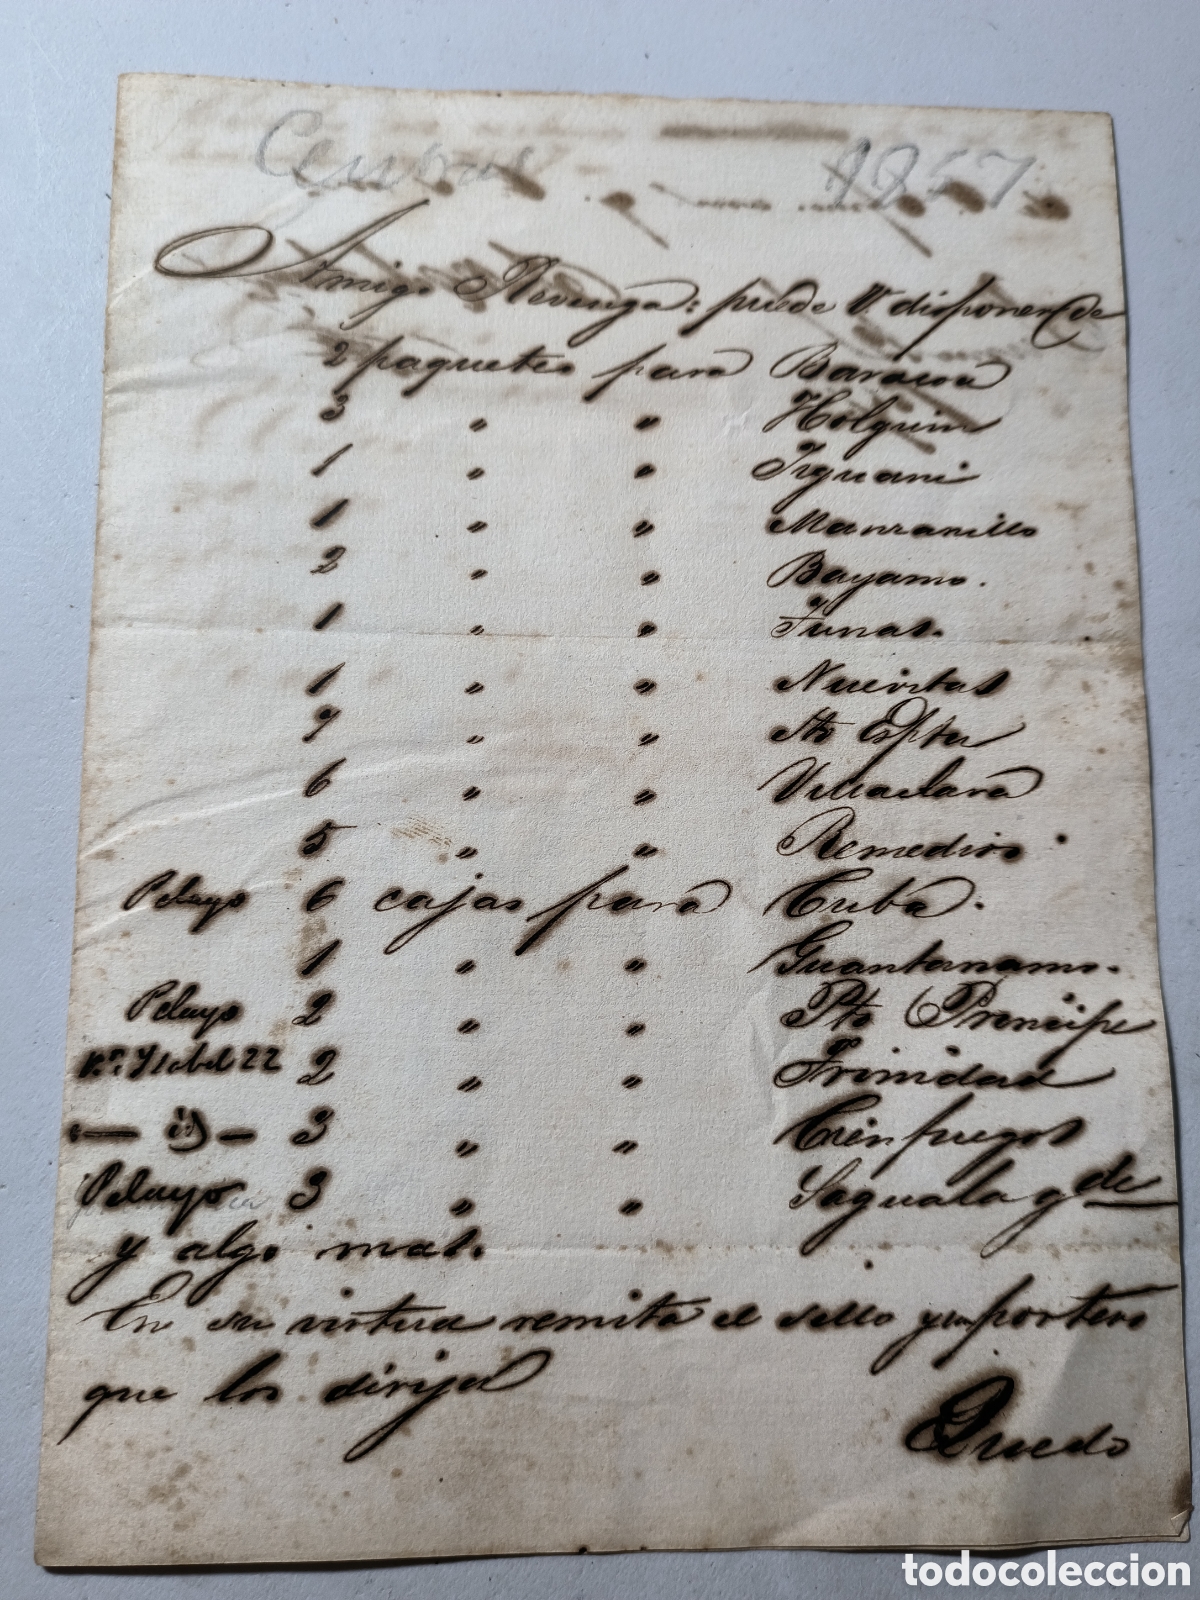 Central 1857
Amigo Revenga: puede V. disponer de
2 paquetes para Baracoa
3 " " Holguin
1 " " Jiguani
1 " " Manzanillo
2 " " Bayamo.
1 " " Tunas.
1 " " Nuevitas
7 " " Sto Espitu
6 " " Villaclara
5 " " Remedios
Pelayo 6 cajas para Cuba.
1 " " Guantanamo.
Pelayo 2 " " Pto Principe
Ysabel 22 2 " " Trinidad
3 " " Cienfuegos
Pelayo 3 " " Sagua la gde
y algo mas.
En su virtud remita el sello y un portero
que los dirija
Quedo
todocoleccion